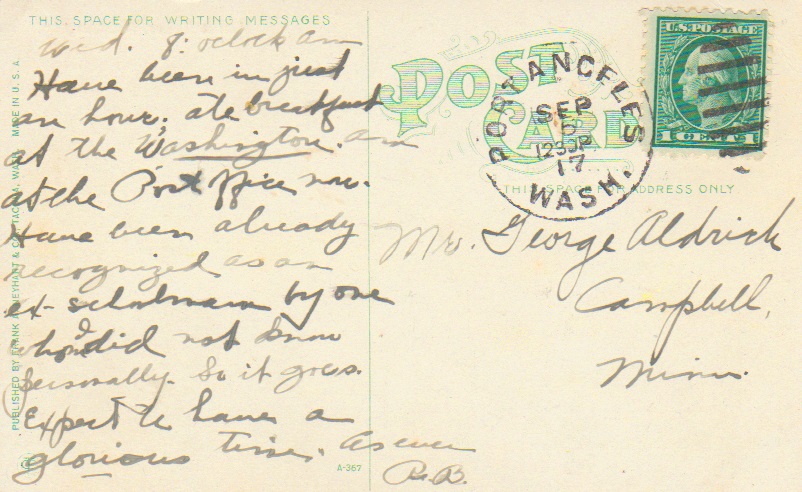 THIS SPACE FOR WRITING MESSAGES
Wed. 8: oclock am
Have been in just
an hour, ate breakfast
at the Washington. am
at the Post Office now.
Have been already
recognized as an
ex-schoolmam by one
whom I did not know
personally. So it goes.
Expect to have a
glorious time. As ever
R.B.
PUBLISHED BY FRANK
TACOMA, WASH. MADE IN U.S.A.
A-357
POST CARD
PORT ANGELES
SEP
5
1230P
17
WASH.
U.S. POSTAGE
1 CENTS 1
THIS SPACE FOR ADDRESS ONLY.
Mr. George Aldrich
Campbell,
Minn.